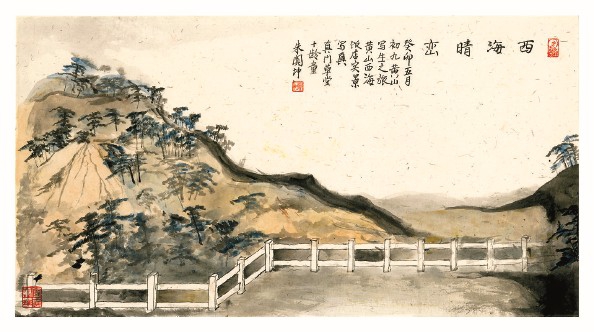 西海晴峦
癸卯五月
初九黄山
写生之旅
黄山西海
饭店实景
写真
草堂
十龄童
朱